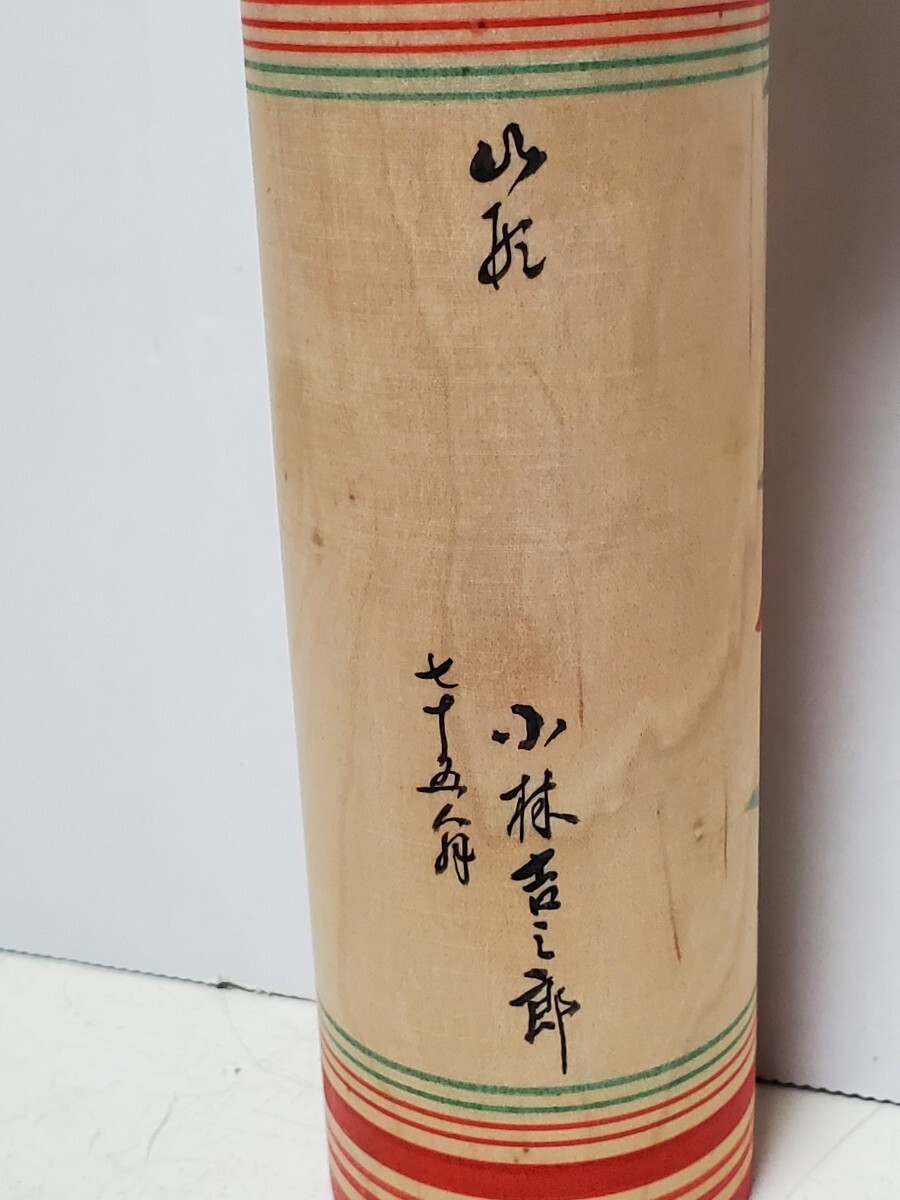 山形
小林吉之郎
七十五翁